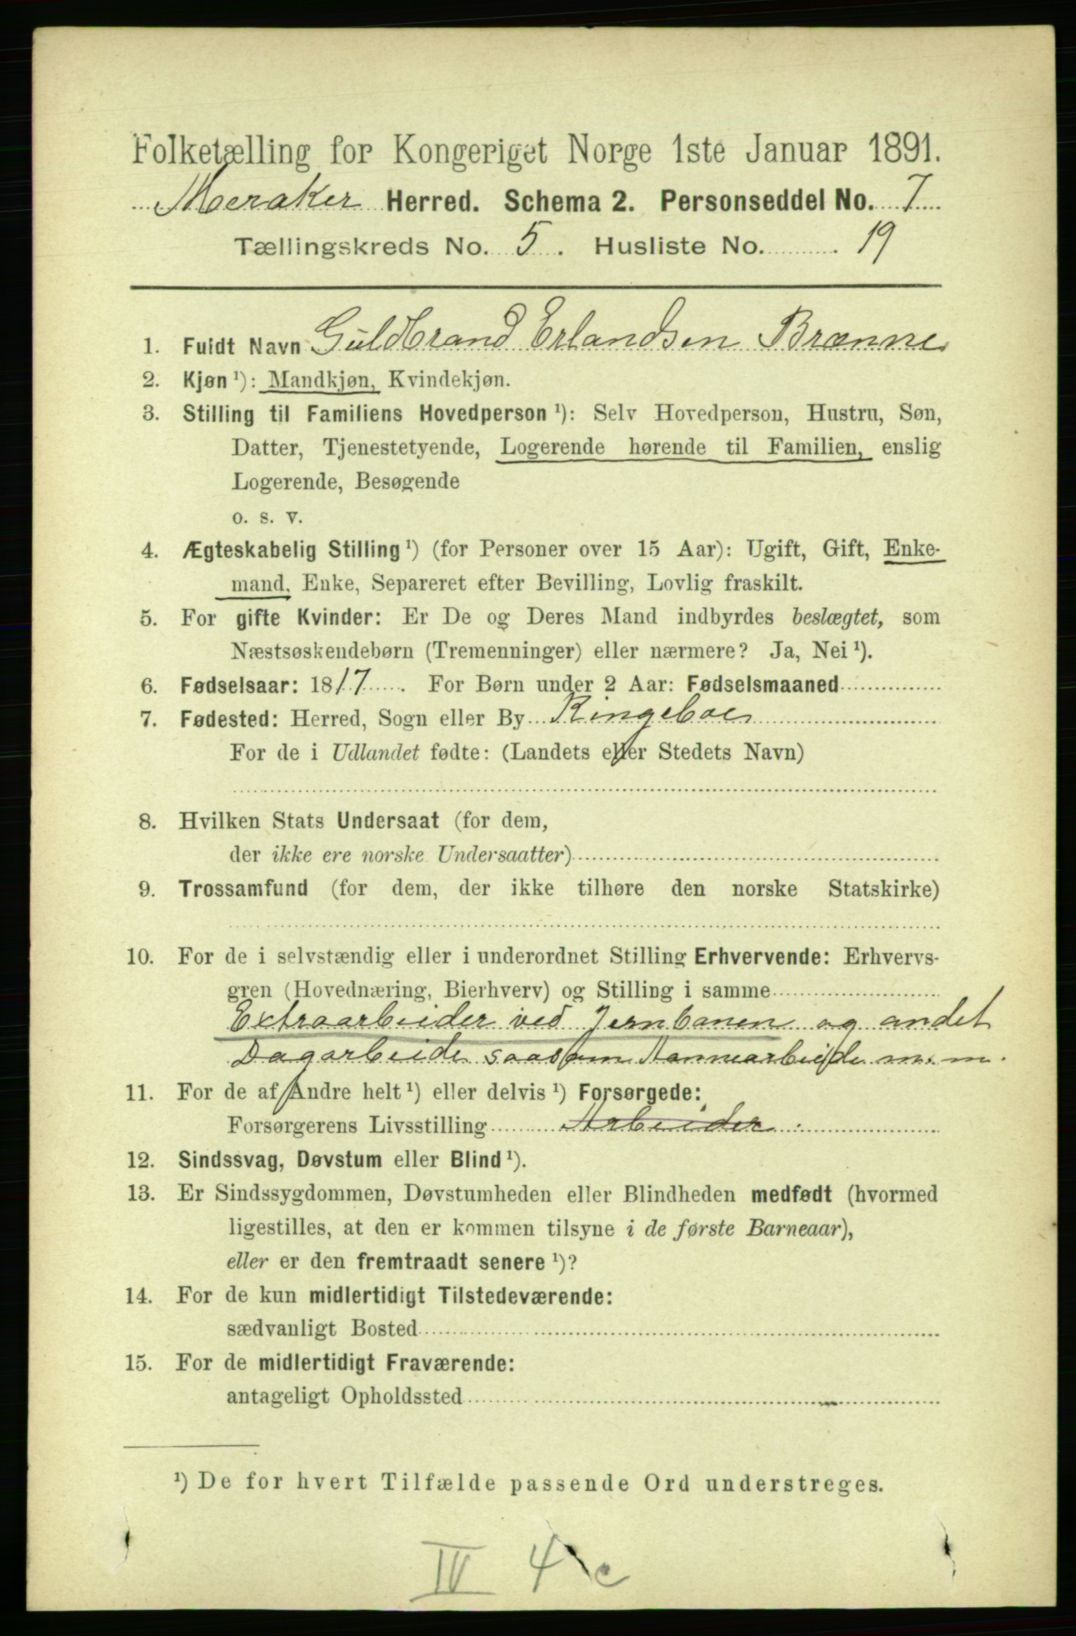 Folketælling for Kongeriget Norge 1ste Januar 1891.
Meraker Herred. Schema 2. Personseddel No. 7
Tællingskreds No. 5. Husliste No. 19
1. Fuldt Navn Guldbrand Erlandsen Brænne
2. Kjøn ¹): Mandkjøn, Kvindekjøn.
3. Stilling til Familiens Hovedperson ¹): Selv Hovedperson, Hustru, Søn,
Datter, Tjenestetyende, Logerende hørende til Familien, enslig
Logerende, Besøgende
o. s. v.
4. Ægteskabelig Stilling ¹) (for Personer over 15 Aar): Ugift, Gift, Enke-
mand, Enke, Separeret efter Bevilling, Lovlig fraskilt.
5. For gifte Kvinder: Er De og Deres Mand indbyrdes beslægtet, som
Næstsøskendebørn (Tremenninger) eller nærmere? Ja, Nei ¹).
6. Fødselsaar: 1817. For Børn under 2 Aar: Fødselsmaaned
7. Fødested: Herred, Sogn eller By Ringeboe
For de i Udlandet fødte: (Landets eller Stedets Navn)
8. Hvilken Stats Undersaat (for dem,
der ikke ere norske Undersaatter)
9. Trossamfund (for dem, der ikke tilhøre den norske Statskirke)
10. For de i selvstændig eller i underordnet Stilling Erhvervende: Erhvervs-
gren (Hovednæring, Bierhverv) og Stilling i samme
Extraarbeider ved Jernbanen og andet
Dagarbeide saasom m. m.
11. For de af Andre helt ¹) eller delvis ¹) Forsørgede:
Forsørgerens Livsstilling Arbeider
12. Sindssvag, Døvstum eller Blind ¹).
13. Er Sindssygdommen, Døvstumheden eller Blindheden medfødt (hvormed
ligestilles, at den er kommen tilsyne i de første Barneaar),
eller er den fremtraadt senere ¹)?
14. For de kun midlertidigt Tilstedeværende:
sædvanligt Bosted
15. For de midlertidigt Fraværende:
antageligt Opholdssted
¹) De for hvert Tilfælde passende Ord understreges.
IV 4 c